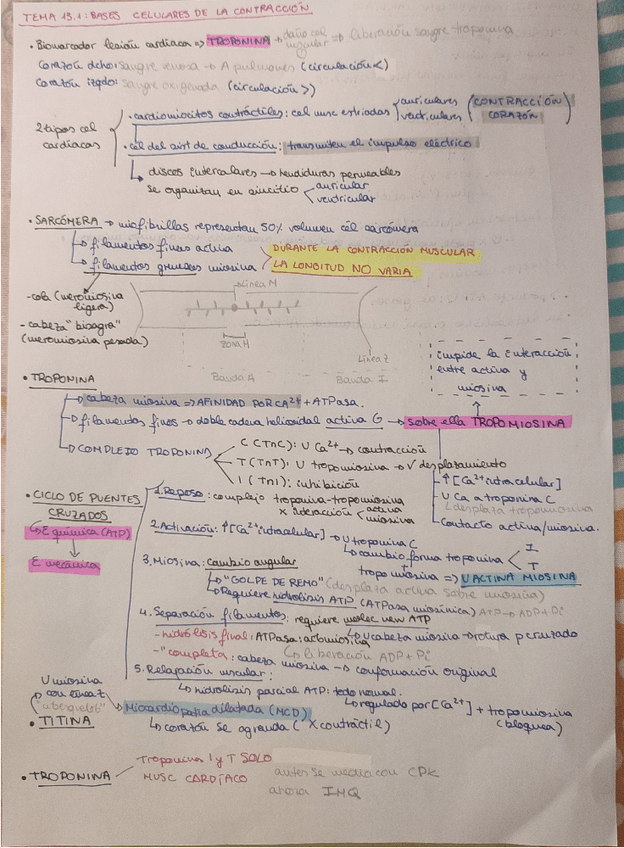 TEMA 15.1: BASES CELULARES DE LA CONTRACCIÓN
• Biomarcador lesión cardiaca => TROPONINA -> daño cel => liberación sangre troponina
Corazón dcho: sangre venosa -> A pulmones (circulación <)
Corazón izqdo: sangre oxigenada (circulación >)
2 tipos cel cardiacas
• cardiomiocitos contráctiles: cel musc estriadas auriculares ventriculares (CONTRACCIÓN CORAZÓN)
• cel del sist de conducción: transmiten el impulso eléctrico
discos intercalares -> hendiduras permeables
se organizan en sincitio auricular ventricular
• SARCÓMERA -> miofibrillas representan 50% volumen cél
filamentos finos actina
filamentos gruesos miosina
DURANTE LA CONTRACCIÓN MUSCULAR
LA LONGITUD NO VARIA
- cola (meromiosina ligera)
- cabeza "bisagra" (meromiosina pesada)
Línea M
zona H
Línea Z
Banda A
Banda I
impide la interacción entre actina y miosina
• TROPONINA
cabeza miosina => AFINIDAD POR Ca2+ + ATPasa.
filamentos finos -> doble cadena helicoidal actina G -> sobre ella TROPOMIOSINA
COMPLEJO TROPONINA
C (TnC): U Ca2+ -> contracción
T (TnT): U tropomiosina -> desplazamiento
I (TnI): inhibición
- ↑[Ca2+ intracelular]
- U Ca a troponina C
desplaza tropomiosina
- Contacto actina/miosina.
• CICLO DE PUENTES CRUZADOS
E química (ATP)
E mecánica
1. Reposo: complejo troponina-tropomiosina
x interacción actina miosina
2. Activación: ↑[Ca2+ intracelular] -> U troponina C
cambio forma troponina I T
tropomiosina => U ACTINA MIOSINA
3. Miosina: cambio angular
"GOLPE DE REMO" (desplaza actina sobre miosina)
Requiere hidrólisis ATP (ATPasa miosínica) ATP -> ADP + Pi
4. Separación filamentos: requiere molec new ATP
U cabeza miosina -> rotura p cruzado
- hidrólisis final: ATPasa: actomiosina
- " completa: cabeza miosina -> conformación original
liberación ADP + Pi
5. Relajación muscular:
hidrólisis parcial ATP: todo normal.
regulado por [Ca2+] + tropomiosina (bloquea)
U miosina con línea Z
• TITINA
Miocardiopatía dilatada (MCD)
corazón se agranda (x contráctil)
• TROPONINA
Troponina I y T SOLO
MUSC CARDÍACO
antes se medía con CPK
ahora IMQ